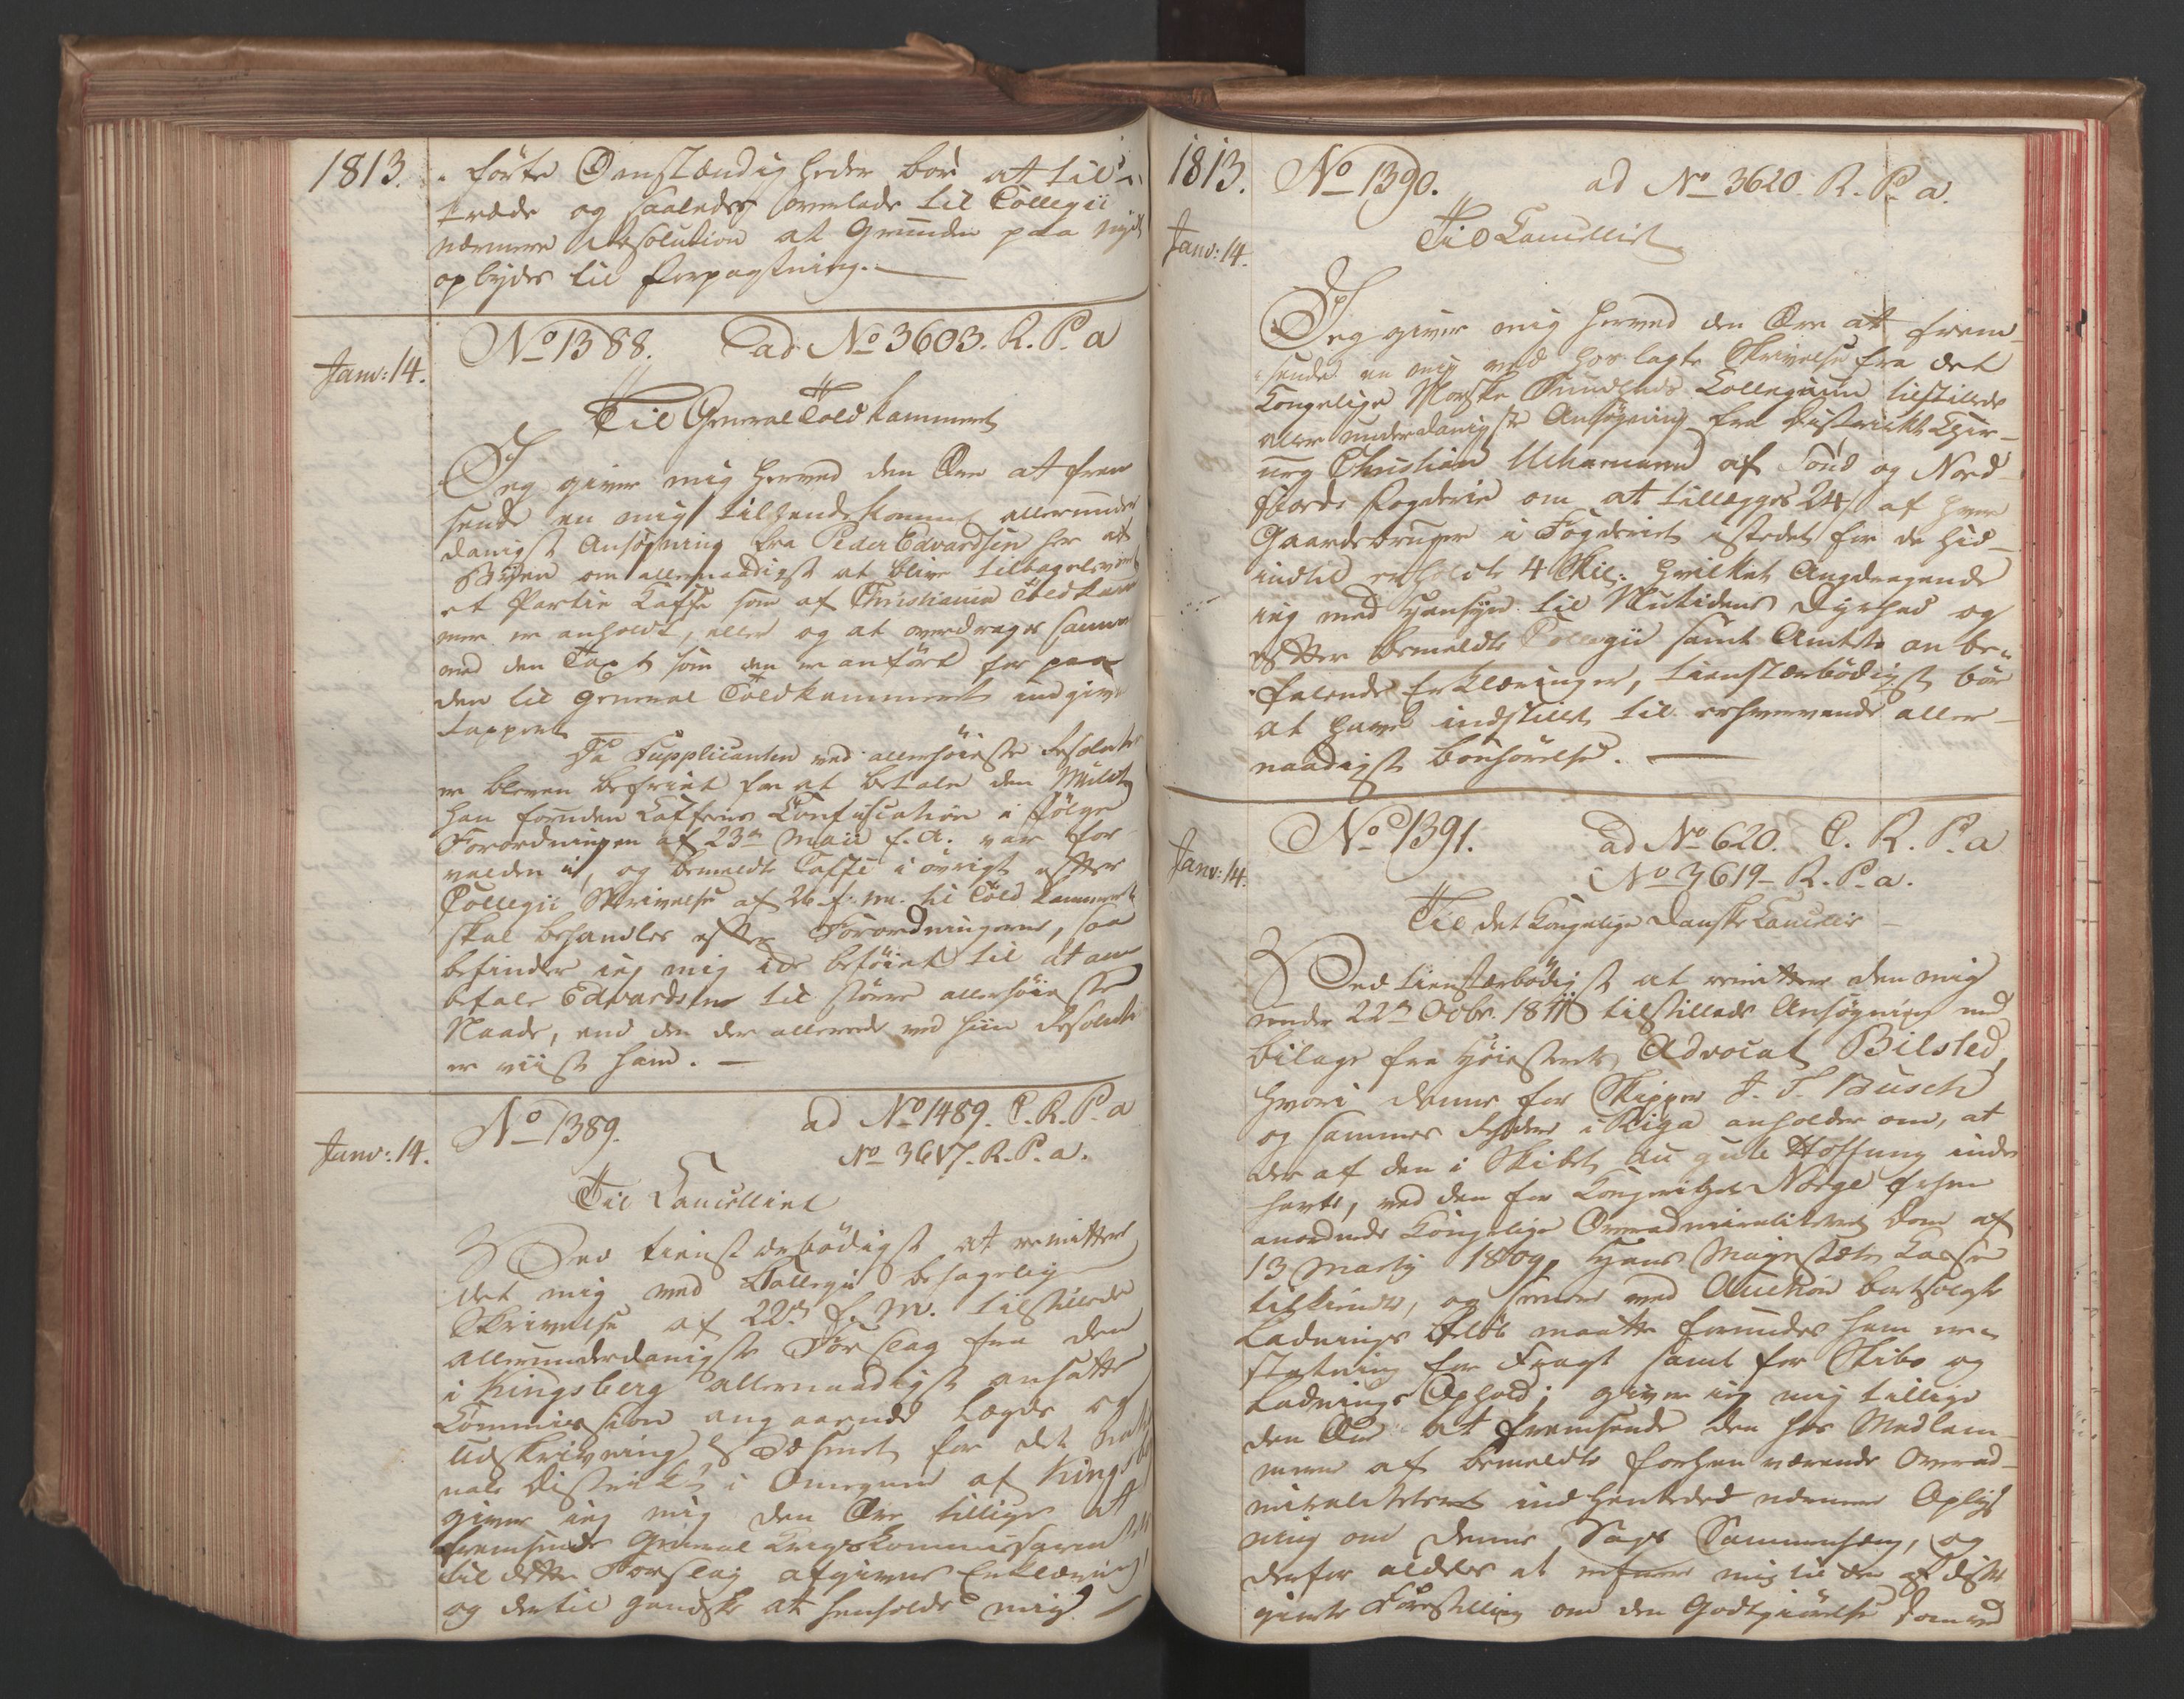 1813.
førte Omstændigheder bør at til-
træde og saaledes overlade til Collegii
nærmere Resolution at Grunden paa nyt
opbydes til Forpagtning. —
Janv: 14.
No 1388. ad No 3603. R. P. a
Til General Told Kammeret
Jeg giver mig herved den Ære at frem
sende en mig tilhændekommen allerunder
danigst Ansøgning fra Peder Edvardsen her af
Byen om allernaadigst at blive tilbageleveret
et Partie Kaffe som af Christiania Toldkam
mer er anholdt, eller og at overdrages samme
mod den Taxt som den er anført for paa
den til General Toldkammeret indgivne
Rapport
Da Supplicanten ved allerhøieste Resolution
er bleven befriet for at betale den Mulct
han foruden Caffeens Confiscation i Følge
Forordningen af 23de Maii f. A. var for
falden i, og bemeldte Caffe i øvrigt efter
Collegii Skrivelse af 26 f. M. til Told Kammeret
skal behandles efter Forordningerne, saa
befinder jeg mig ei beføiet til at an
befale Edvardsen til større allerhøieste
Naade, end den der allerede ved hiin Resolution
er viist ham. —
Janv: 14.
No 1389. ad No 1489. C. R. P. a
No 3617. R. P. a.
Til Cancelliet
Ved tienstærbødigst at remittere
det mig med Collegii behagelig
Skrivelse af 22de f. M. tilstillede
allerunderdanigste Forslag fra den
i Kingsberg allernaadigst ansatte
Commission angaaende Lægds og
Udskrivnings Væsenet for det
nale District i Omegnen af Kingsb
giver jeg mig den Ære tillige at
fremsende General Krigskommissairens
til dette Forslag afgivne Erklæring
og dertil gandske at henholde mig. —
1813.
Janv: 14.
No 1390. ad No 3620. R. P. a.
Til Cancelliet
Jeg giver mig herved den Ære at frem-
sende en mig ved hoslagte Skrivelse fra det
Kongelige Norske Sundheds Collegium tilstillede
allerunderdanigste Ansøgning fra District Chir-
urg Christian Uchermann af Sond og Nord-
fiords Fogderie om at tillægges 24 s af hver
Gaardsbruger i Fogderiet istedet for de hid-
indtil erholdte 4 Skil: hvilket Andragende
jeg med Hensyn til Nutidens Dyrhed og
efter bemeldte Collegii samt Amtets anbe-
falende Erklæringer, tienstærbødigst bør
at have indstillet til erhvervende aller-
naadigst Bønhørelse. —
Janv: 14.
No 1391. ad No 620. C. R. P. a
No 3619 - R. P. a.
Til det Kongelige Danske Cancelie
Ved tienstærbødigst at remittere den mig
under 22de Octbr. 1811 tilstillede Ansøgning med
Bilage fra Høiesterets Advocat Bilsted,
hvori denne for Skipper J. F. Busch
og sammes Redere i Riga anholder om, at
der af den i Skibet die gute Hoffnung inde
havte, ved den for Kongeriget Norge forhen
anordnede Kongelige Overadmiralitetsret Dom af
13 Martij 1809, Hans Majestæts Casse
tilkiendte, og senere ved Auction bortsolgte
Ladnings Beløb maatte forundes ham er-
statning for Fragt samt for Skibs og
Ladnings Ophold; giver jeg mig tillige
den Ære at fremsende den hos Medlem-
merne af bemeldte forhen værende Overad-
miralitetsret indhentede nærmere Oplys
ning om denne Sags Sammenhæng, og
derfor aldeles at referere mig til den af disse
giorte Forestilling om den Godtgiørelse som ved